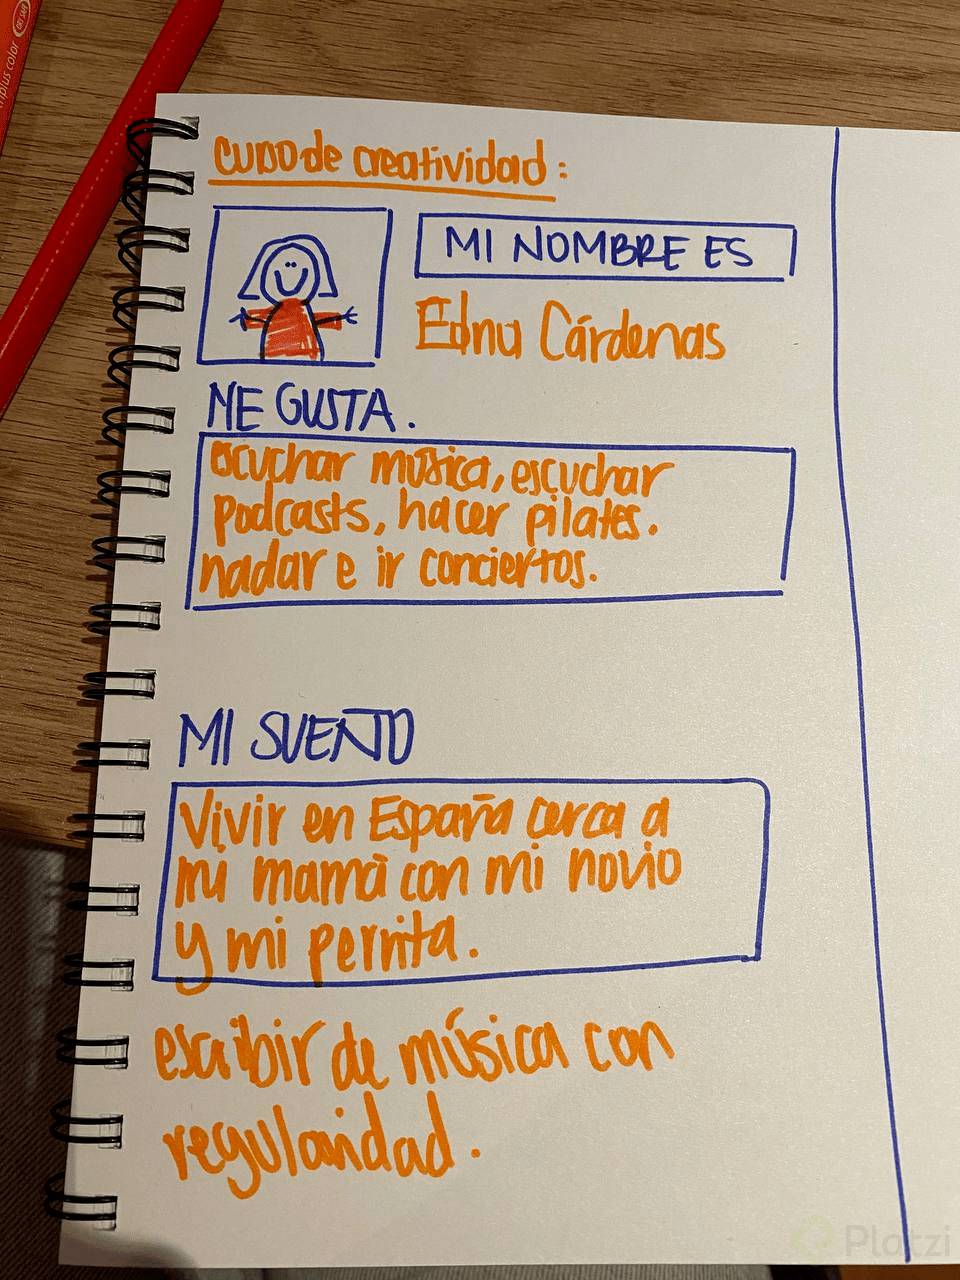 triplus color
CURSO de creatividad:
MI NOMBRE ES
Edna Cárdenas
ME GUSTA.
escuchar música, escuchar
podcasts, hacer pilates.
nadar e ir conciertos.
MI SUEÑO
Vivir en España cerca a
mi mamá con mi novio
y mi perrita.
escribir de música con
regularidad.
Platzi